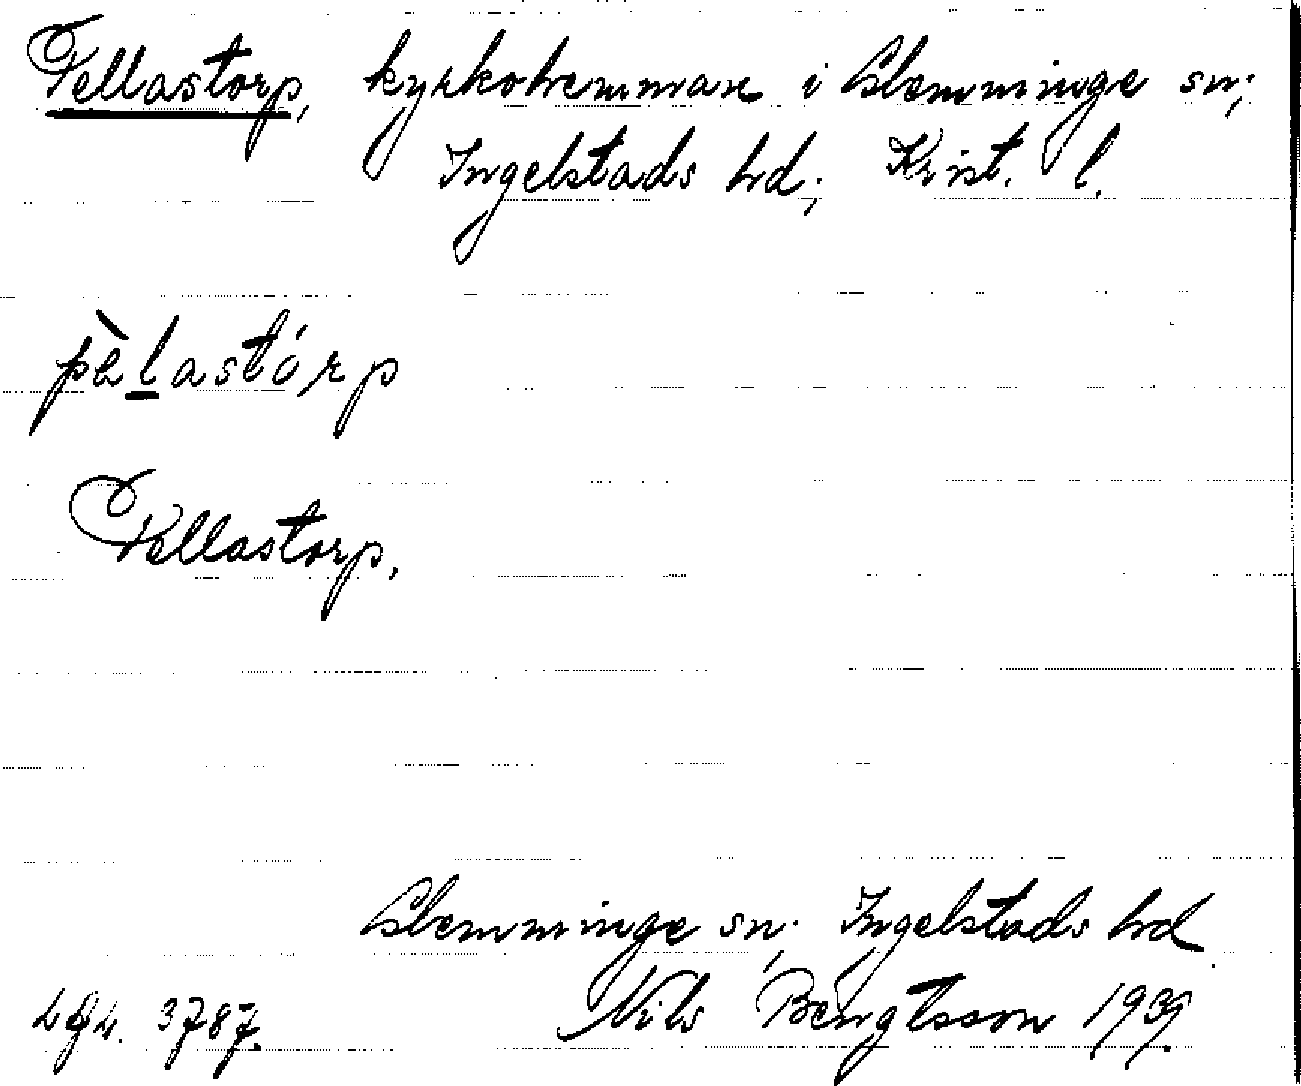 Pellastorp, kyrkohemman i Glemminge sn;
Ingelstads hd; Krist. l.
pèlastórp
Pellastorp,
Glemminge sn; Ingelstads hd.
3787. Nils Bengtsson 1939.